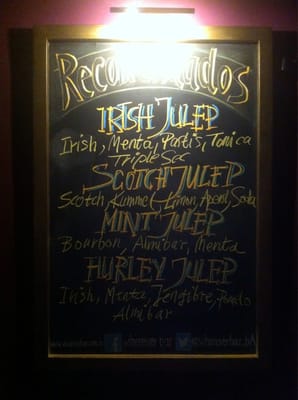 Recomendados
IRISH JULEP
Irish, Menta, Pastis, Tonica
Triple Sec
SCOTCH JULEP
Scotch, Kummel, Limon, Soda
MINT JULEP
Bourbon, Almibar, Menta
HURLEY JULEP
Irish, Menta, Jengibre,
Almibar